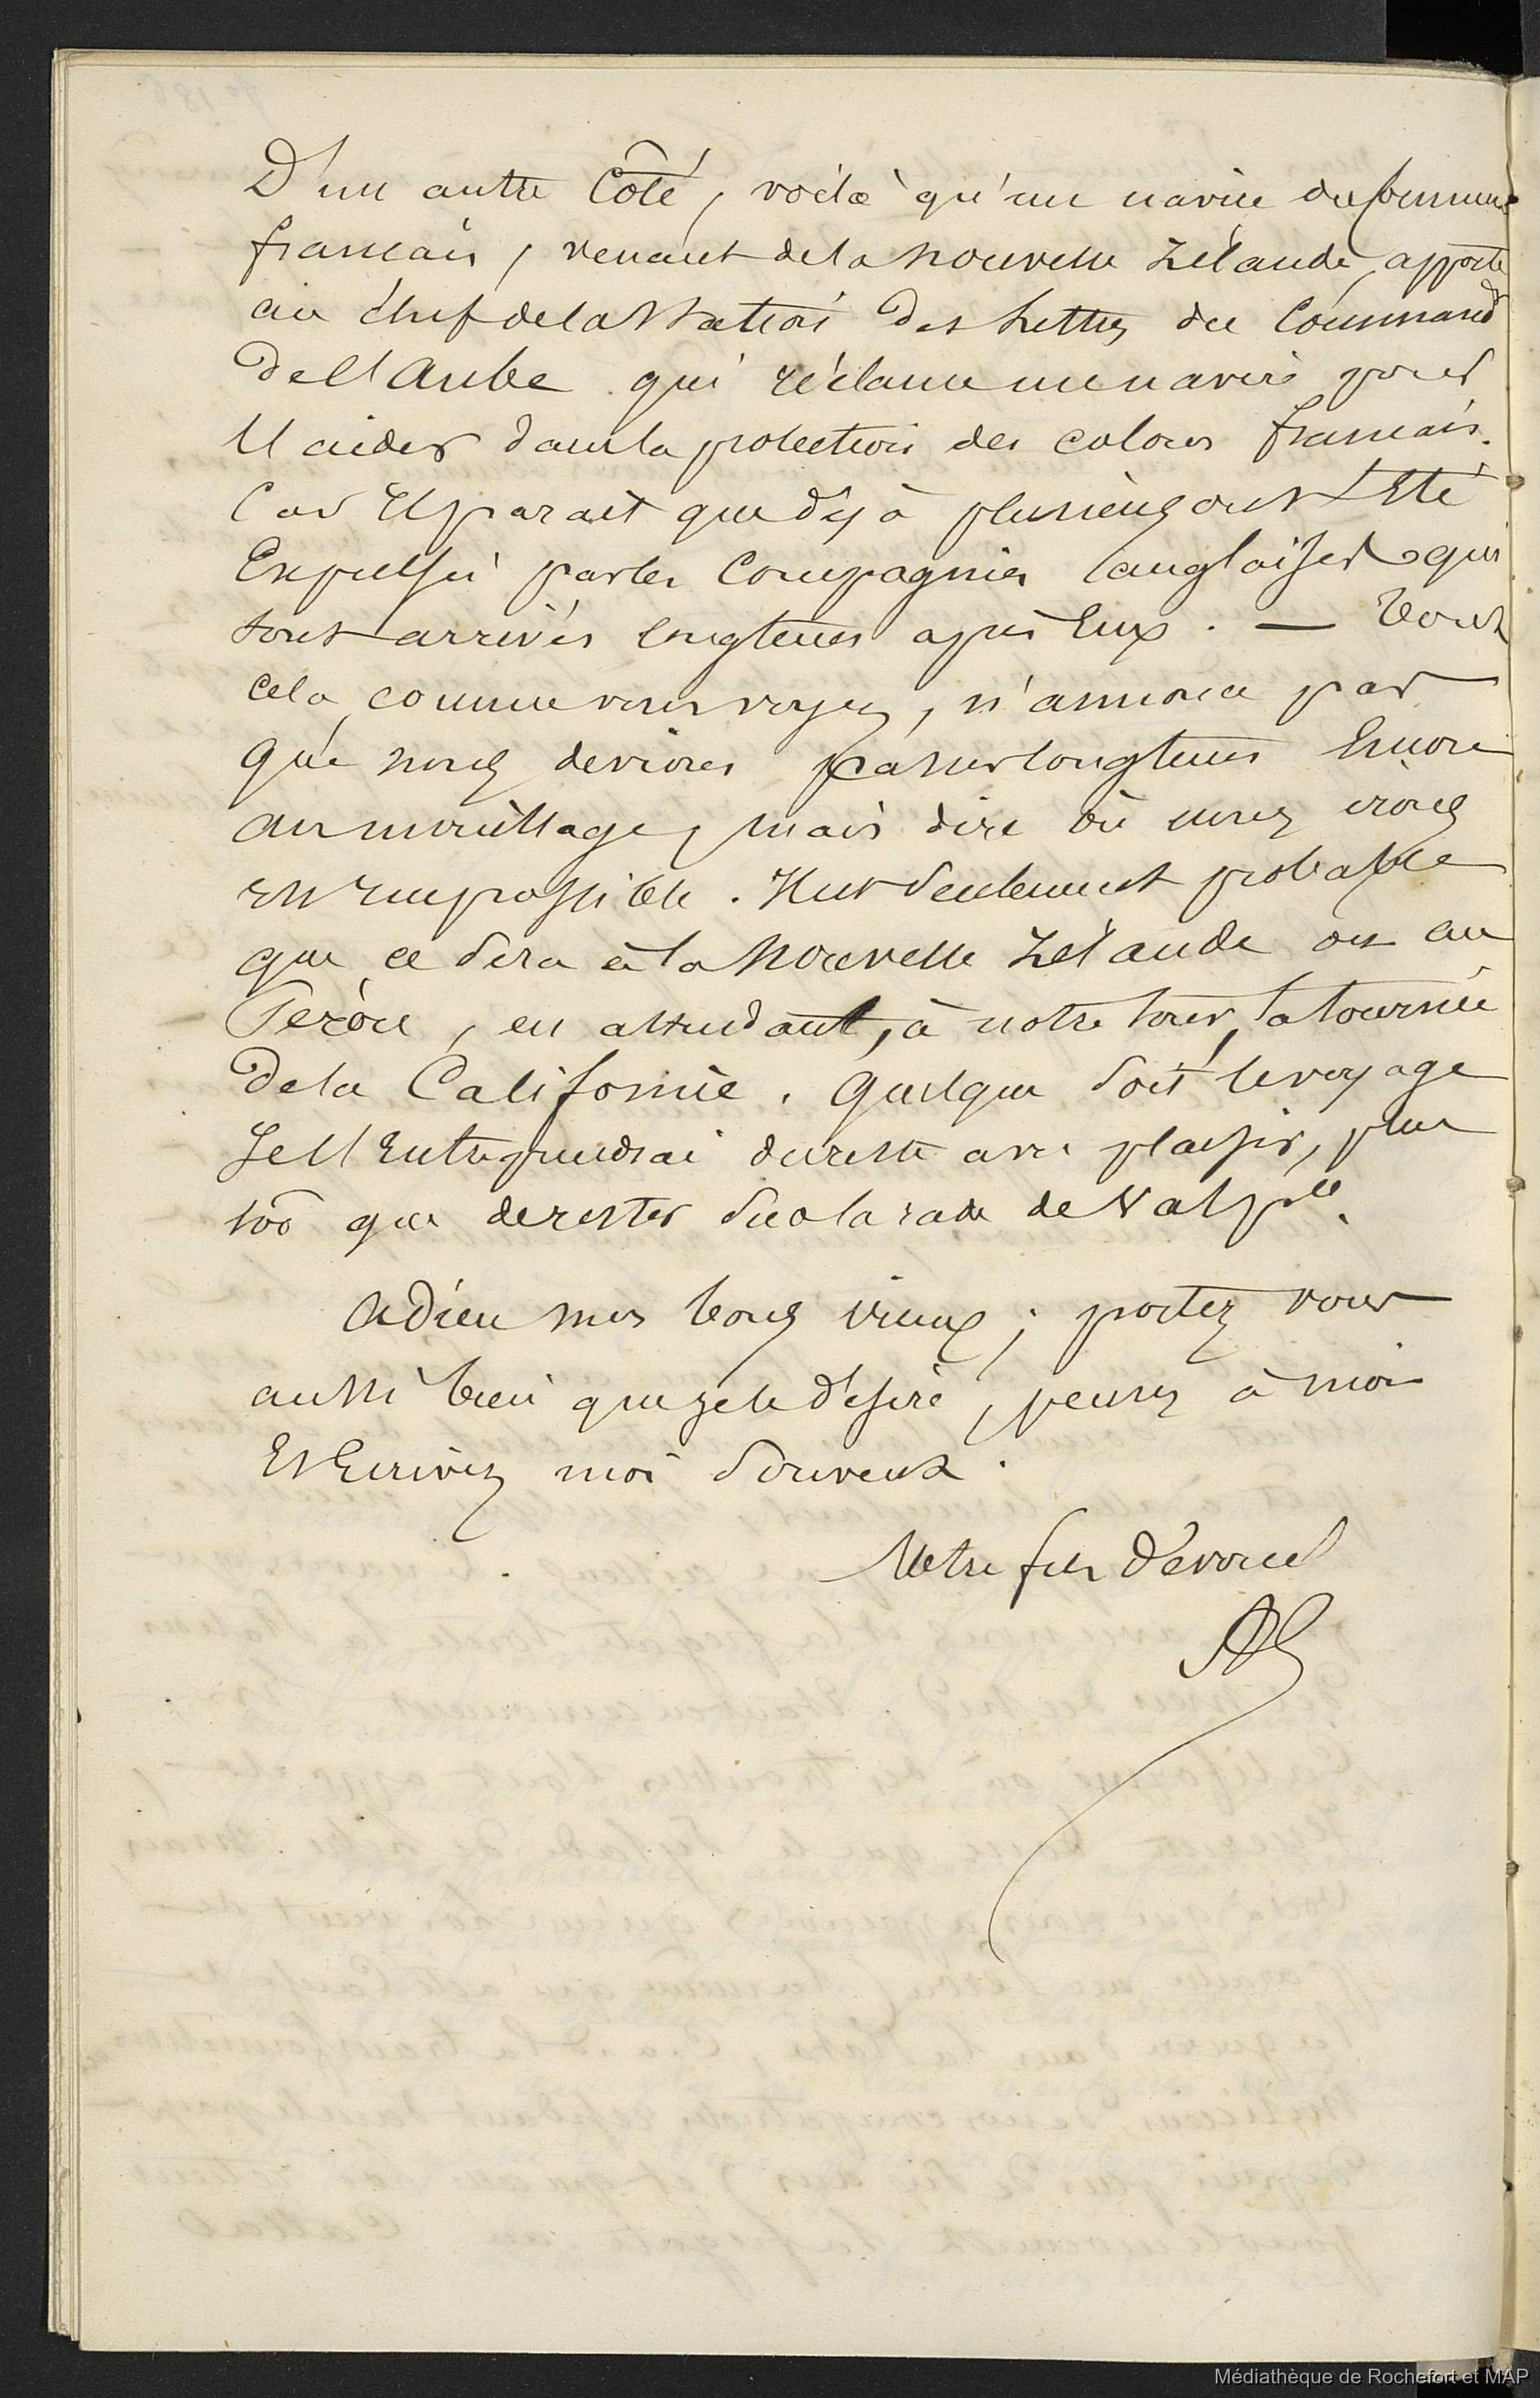 D'un autre Côté, voilà qu'un navire du commerce
français, venant de la Nouvelle Zélande, apporte
au Chef de la Station des Lettres du Command.dt
de l'Aube qui réclame un navire pour
l'aider dans la protection des colons français.
Car il parait que déjà plusieurs ont été
Expulsés par les Compagnies anglaises qui
sont arrivés longtems après Eux. — Tout
cela comme vous voyez, n'annonce pas
que nous devions passer longtems Encore
au mouillage, mais dire où nous irons
est impossible. Il est seulement probable
que ce sera à la Nouvelle Zélande ou au
Pérou, en attendant, à notre tour, la tournée
de la Californie. Quelque soit le voyage
Je l'Entreprendrai du reste avec plaisir, plus
tôt que de rester sur la rade de Valp.so
Adieu mes bons vieux; portez vous
aussi bien que je le désire, pensez à moi
Et Ecrivez moi souvent.
Votre fils dévoué
Médiathèque de Rochefort et MAP